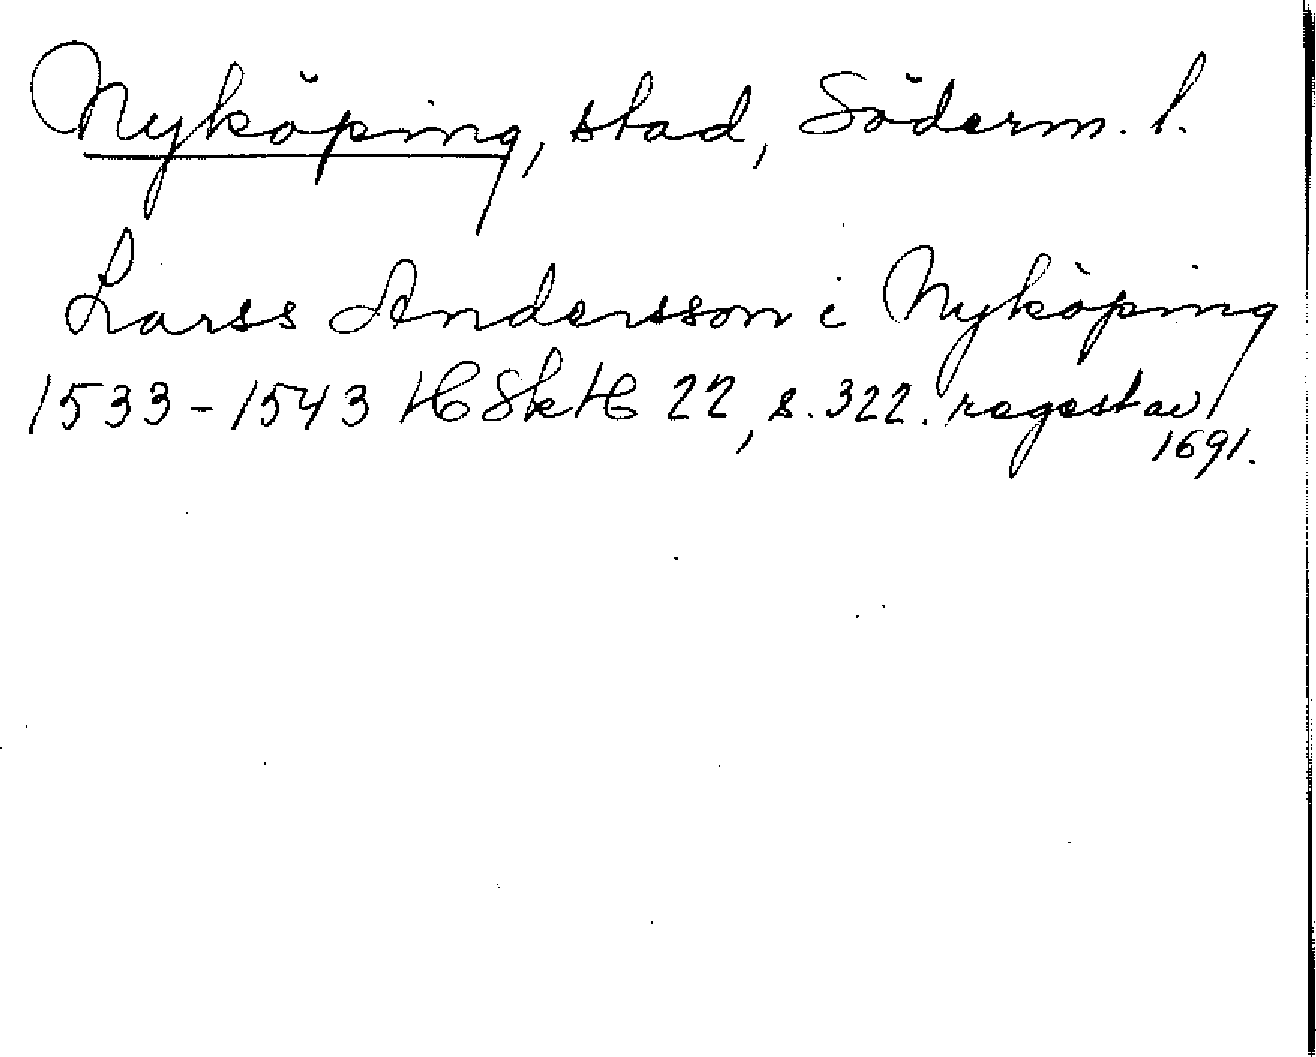 Nyköping, stad, Söderm. l.
Larss Andersson i Nyköping
1533-1543 HSkH 22, s. 322. regest av
1691.